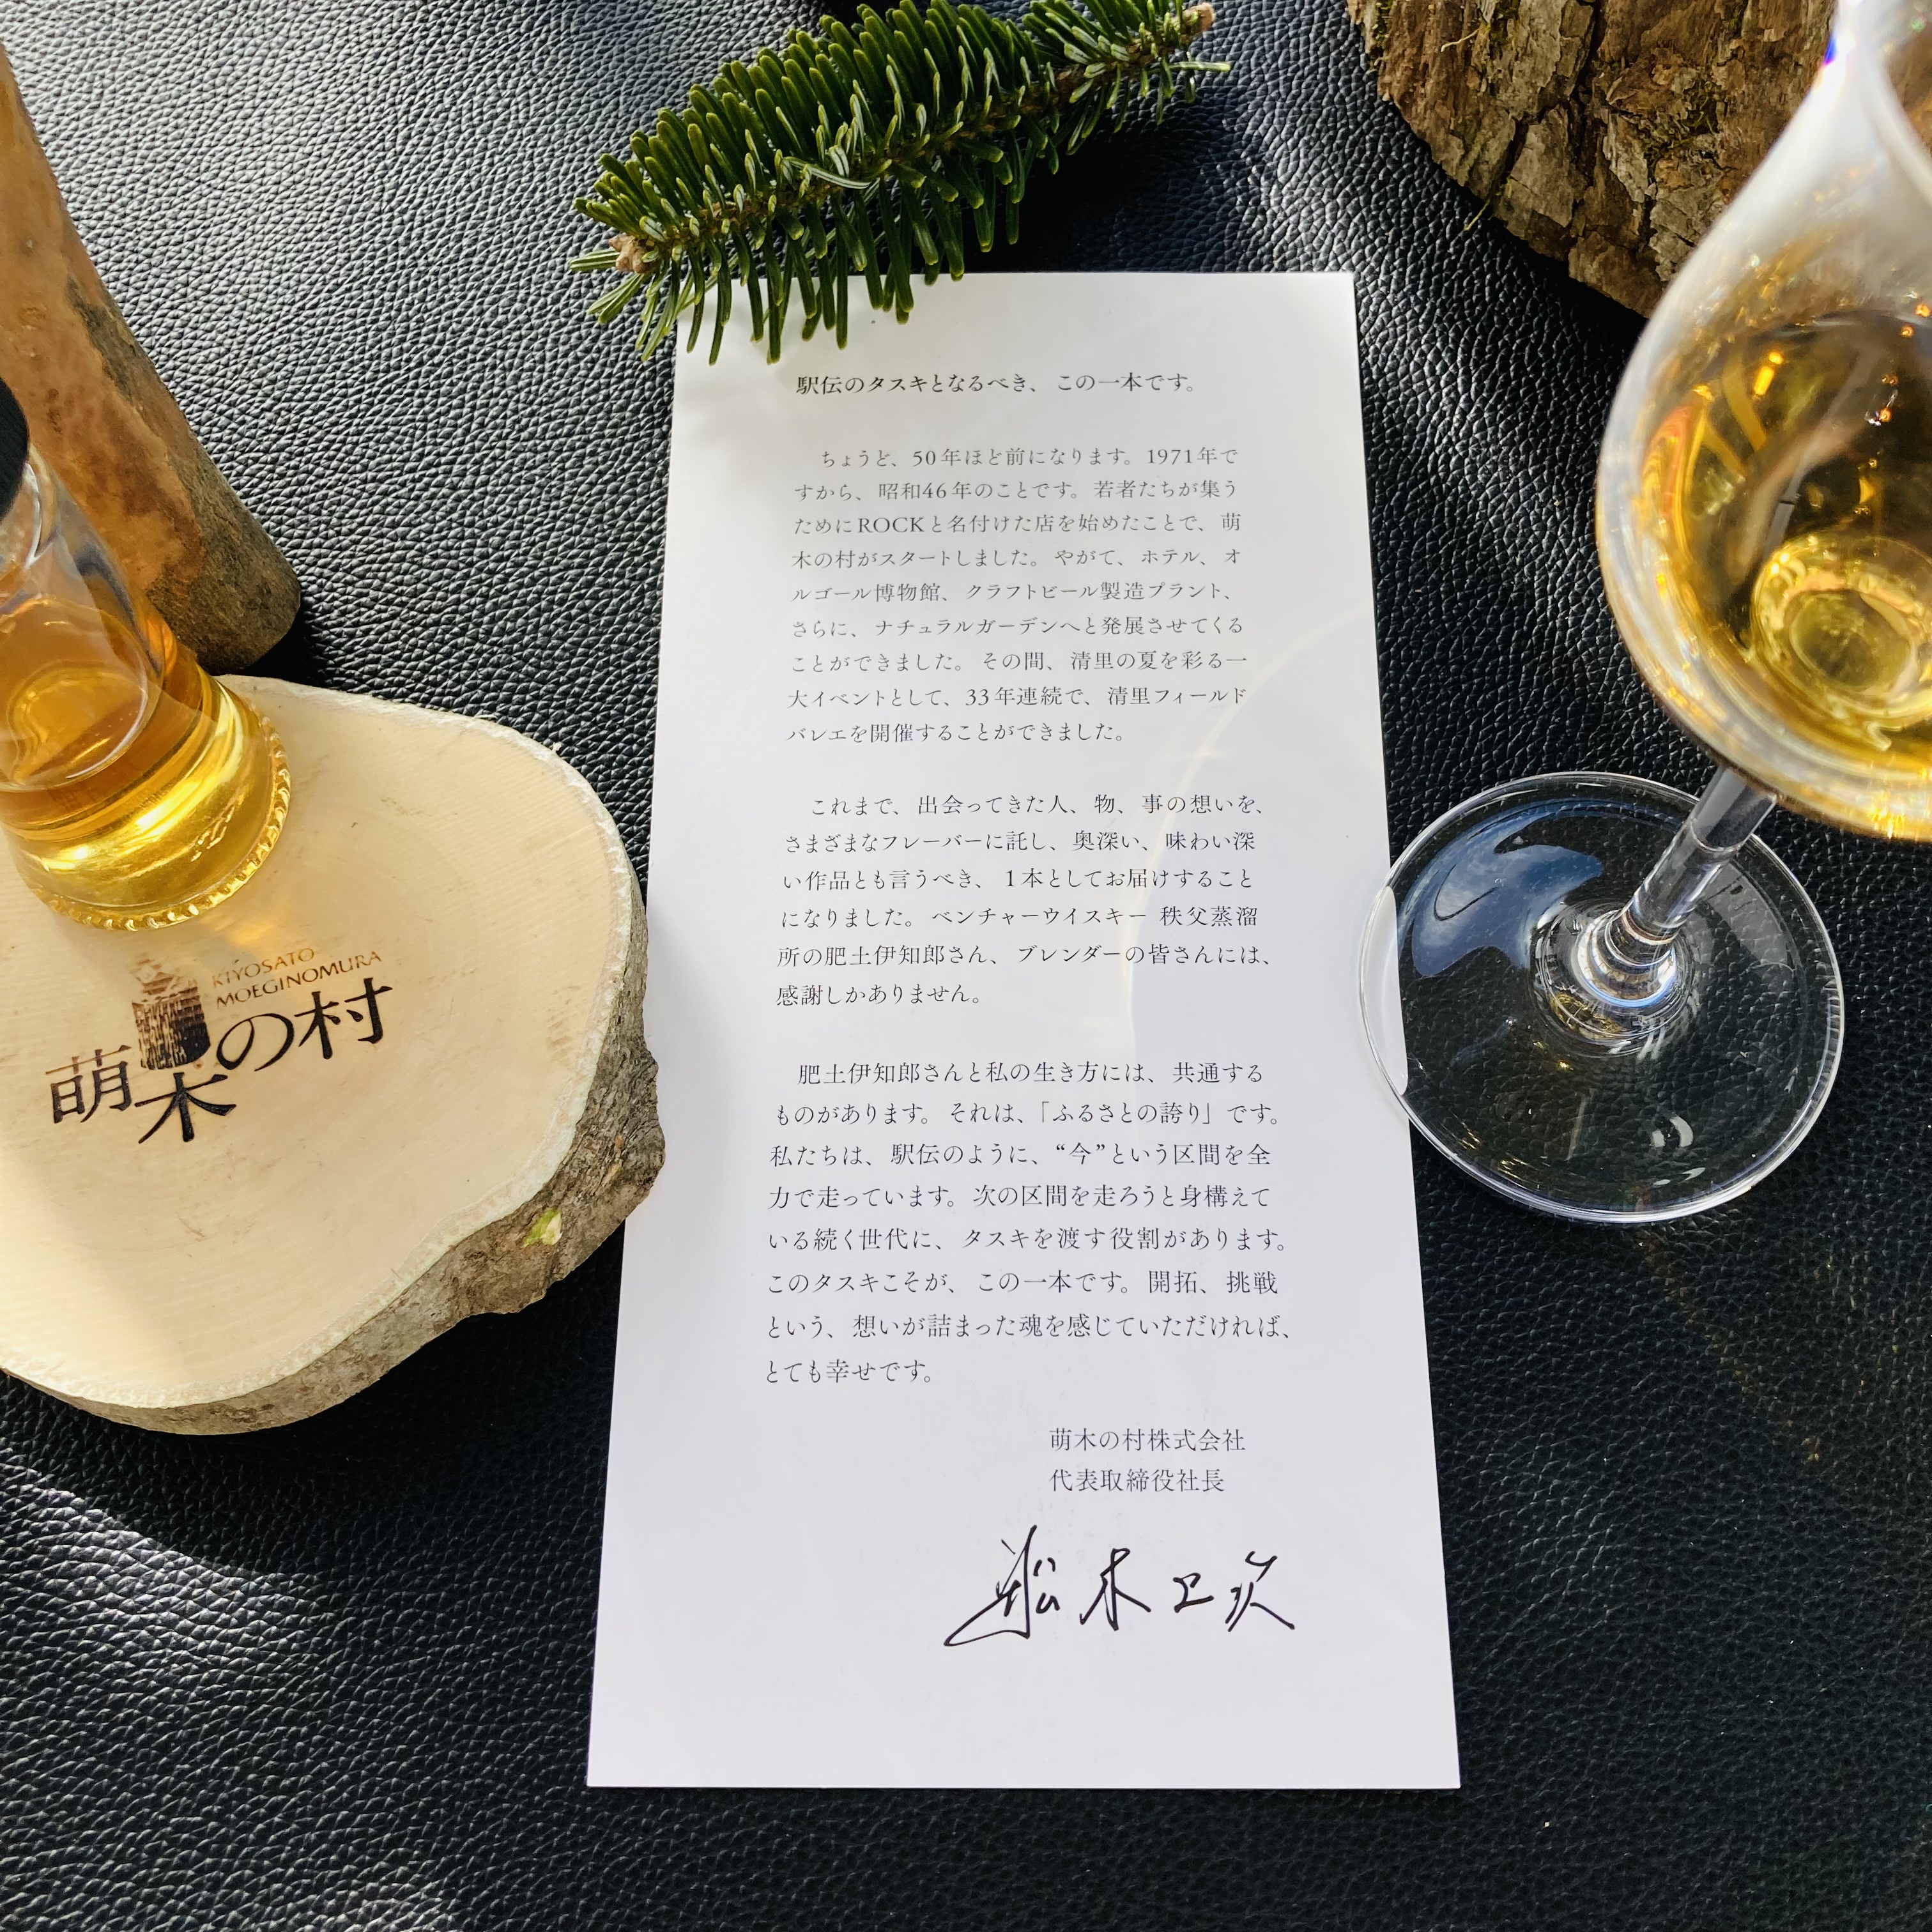 駅伝のタスキとなるべき、この一本です。
ちょうど、50年ほど前になります。1971年で
すから、昭和46年のことです。若者たちが集う
ためにROCKと名付けた店を始めたことで、萌
木の村がスタートしました。やがて、ホテル、オ
ルゴール博物館、クラフトビール製造プラント、
さらに、ナチュラルガーデンへと発展させてくる
ことができました。その間、清里の夏を彩る一
大イベントとして、33年連続で、清里フィールド
バレエを開催することができました。
これまで、出会ってきた人、物、事の想いを、
さまざまなフレーバーに託し、奥深い、味わい深
い作品とも言うべき、1本としてお届けすること
になりました。ベンチャーウイスキー 秩父蒸溜
所の肥土伊知郎さん、ブレンダーの皆さんには、
感謝しかありません。
肥土伊知郎さんと私の生き方には、共通する
ものがあります。それは、「ふるさとの誇り」です。
私たちは、駅伝のように、“今”という区間を全
力で走っています。次の区間を走ろうと身構えて
いる続く世代に、タスキを渡す役割があります。
このタスキこそが、この一本です。開拓、挑戦
という、想いが詰まった魂を感じていただければ、
とても幸せです。
萌木の村株式会社
代表取締役社長
舩木上次
KIYOSATO
MOEGINOMURA
萌木の村